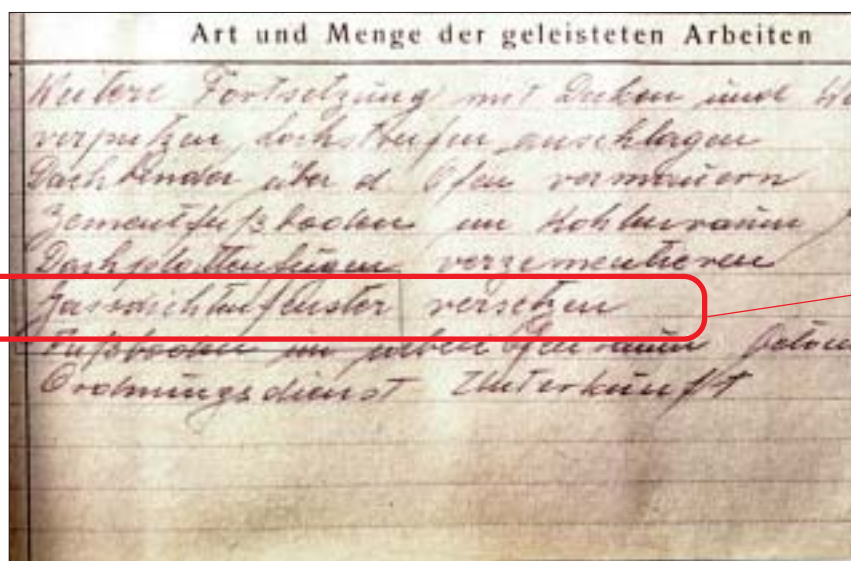 Art und Menge der geleisteten Arbeiten
Weitere Fortsetzung mit Decken und
verputzen, anschlagen
Dachbinder über d Ofen vermauern
Zementfußboden im Kohlenraum
Dachplattenfugen verzementieren
Gassdichtenfenster versetzen
Fußboden im neben Ofenraum
Ordnungsdienst Unterkunft